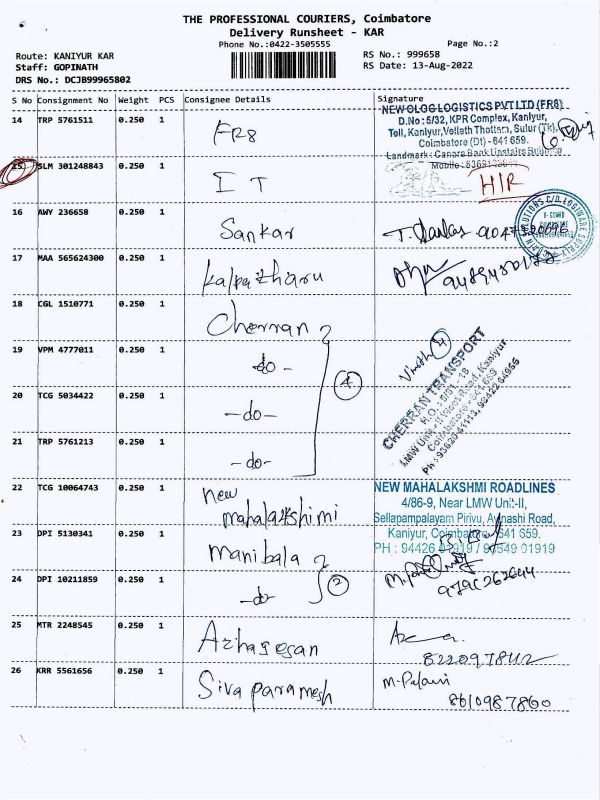 THE PROFESSIONAL COURIERS, Coimbatore
Delivery Runsheet - KAR
Phone No.:0422-3505555
Page No.:2
Route: KANIYUR KAR
RS No.: 999658
Staff: GOPINATH
RS Date: 13-Aug-2022
DRS No.: DCJB99965802
S No Consignment No Weight PCS Consignee Details Signature
14 TRP 5761511 0.250 1 FR8
NEW OLOG LOGISTICS PVT LTD (FR8)
D.No: 5/32, KPR Complex, Kaniyur,
Toll, Kaniyur, Vellath Thottam, Sulur (Tk),
Coimbatore (Dt) - 641 659.
Landmark: Canara Bank Upstairs
Mobile:
SLM 301248843 0.250 1 IT H/R
16 AWY 236658 0.250 1 Sankar
17 MAA 565624300 0.250 1 Kalpatharu
18 CGL 1510771 0.250 1 Cherran
19 VPM 4777011 0.250 1 -do-
20 TCG 5034422 0.250 1 -do-
21 TRP 5761213 0.250 1 -do-
4
CHERRAN TRANSPORT
Coimbatore - 641 659
22 TCG 10064743 0.250 1 New mahalakshimi
NEW MAHALAKSHMI ROADLINES
4/86-9, Near LMW Unit-II,
Sellapampalayam Pirivu, Avinashi Road,
Kaniyur, Coimbatore - 641 659.
23 DPI 5130341 0.250 1 Manibala
24 DPI 10211859 0.250 1 -do-
2
25 MTR 2248545 0.250 1 Azhagesan
26 KRR 5561656 0.250 1 Siva paramesh
M. Palani
8610987860